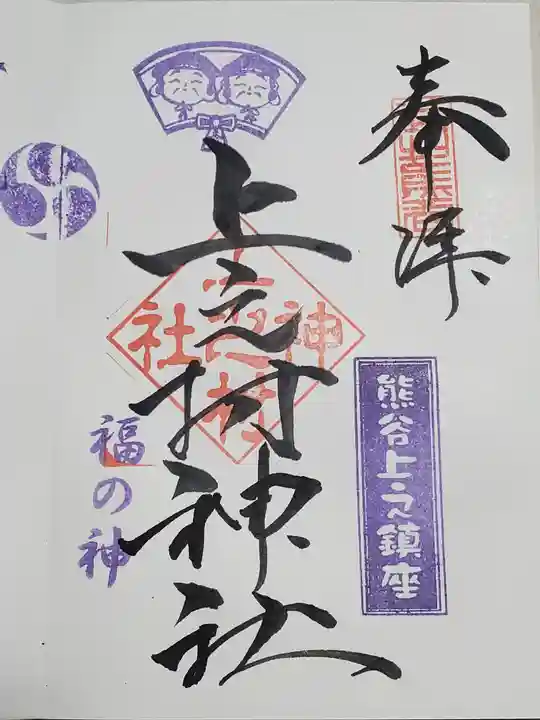 奉拝
熊谷上之鎮座
上之村神社
上之村神社
福の神